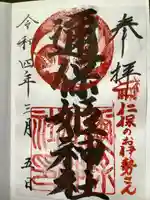 参拝
仁保のお伊勢さん
邇保姫神社
令和四年三月五日